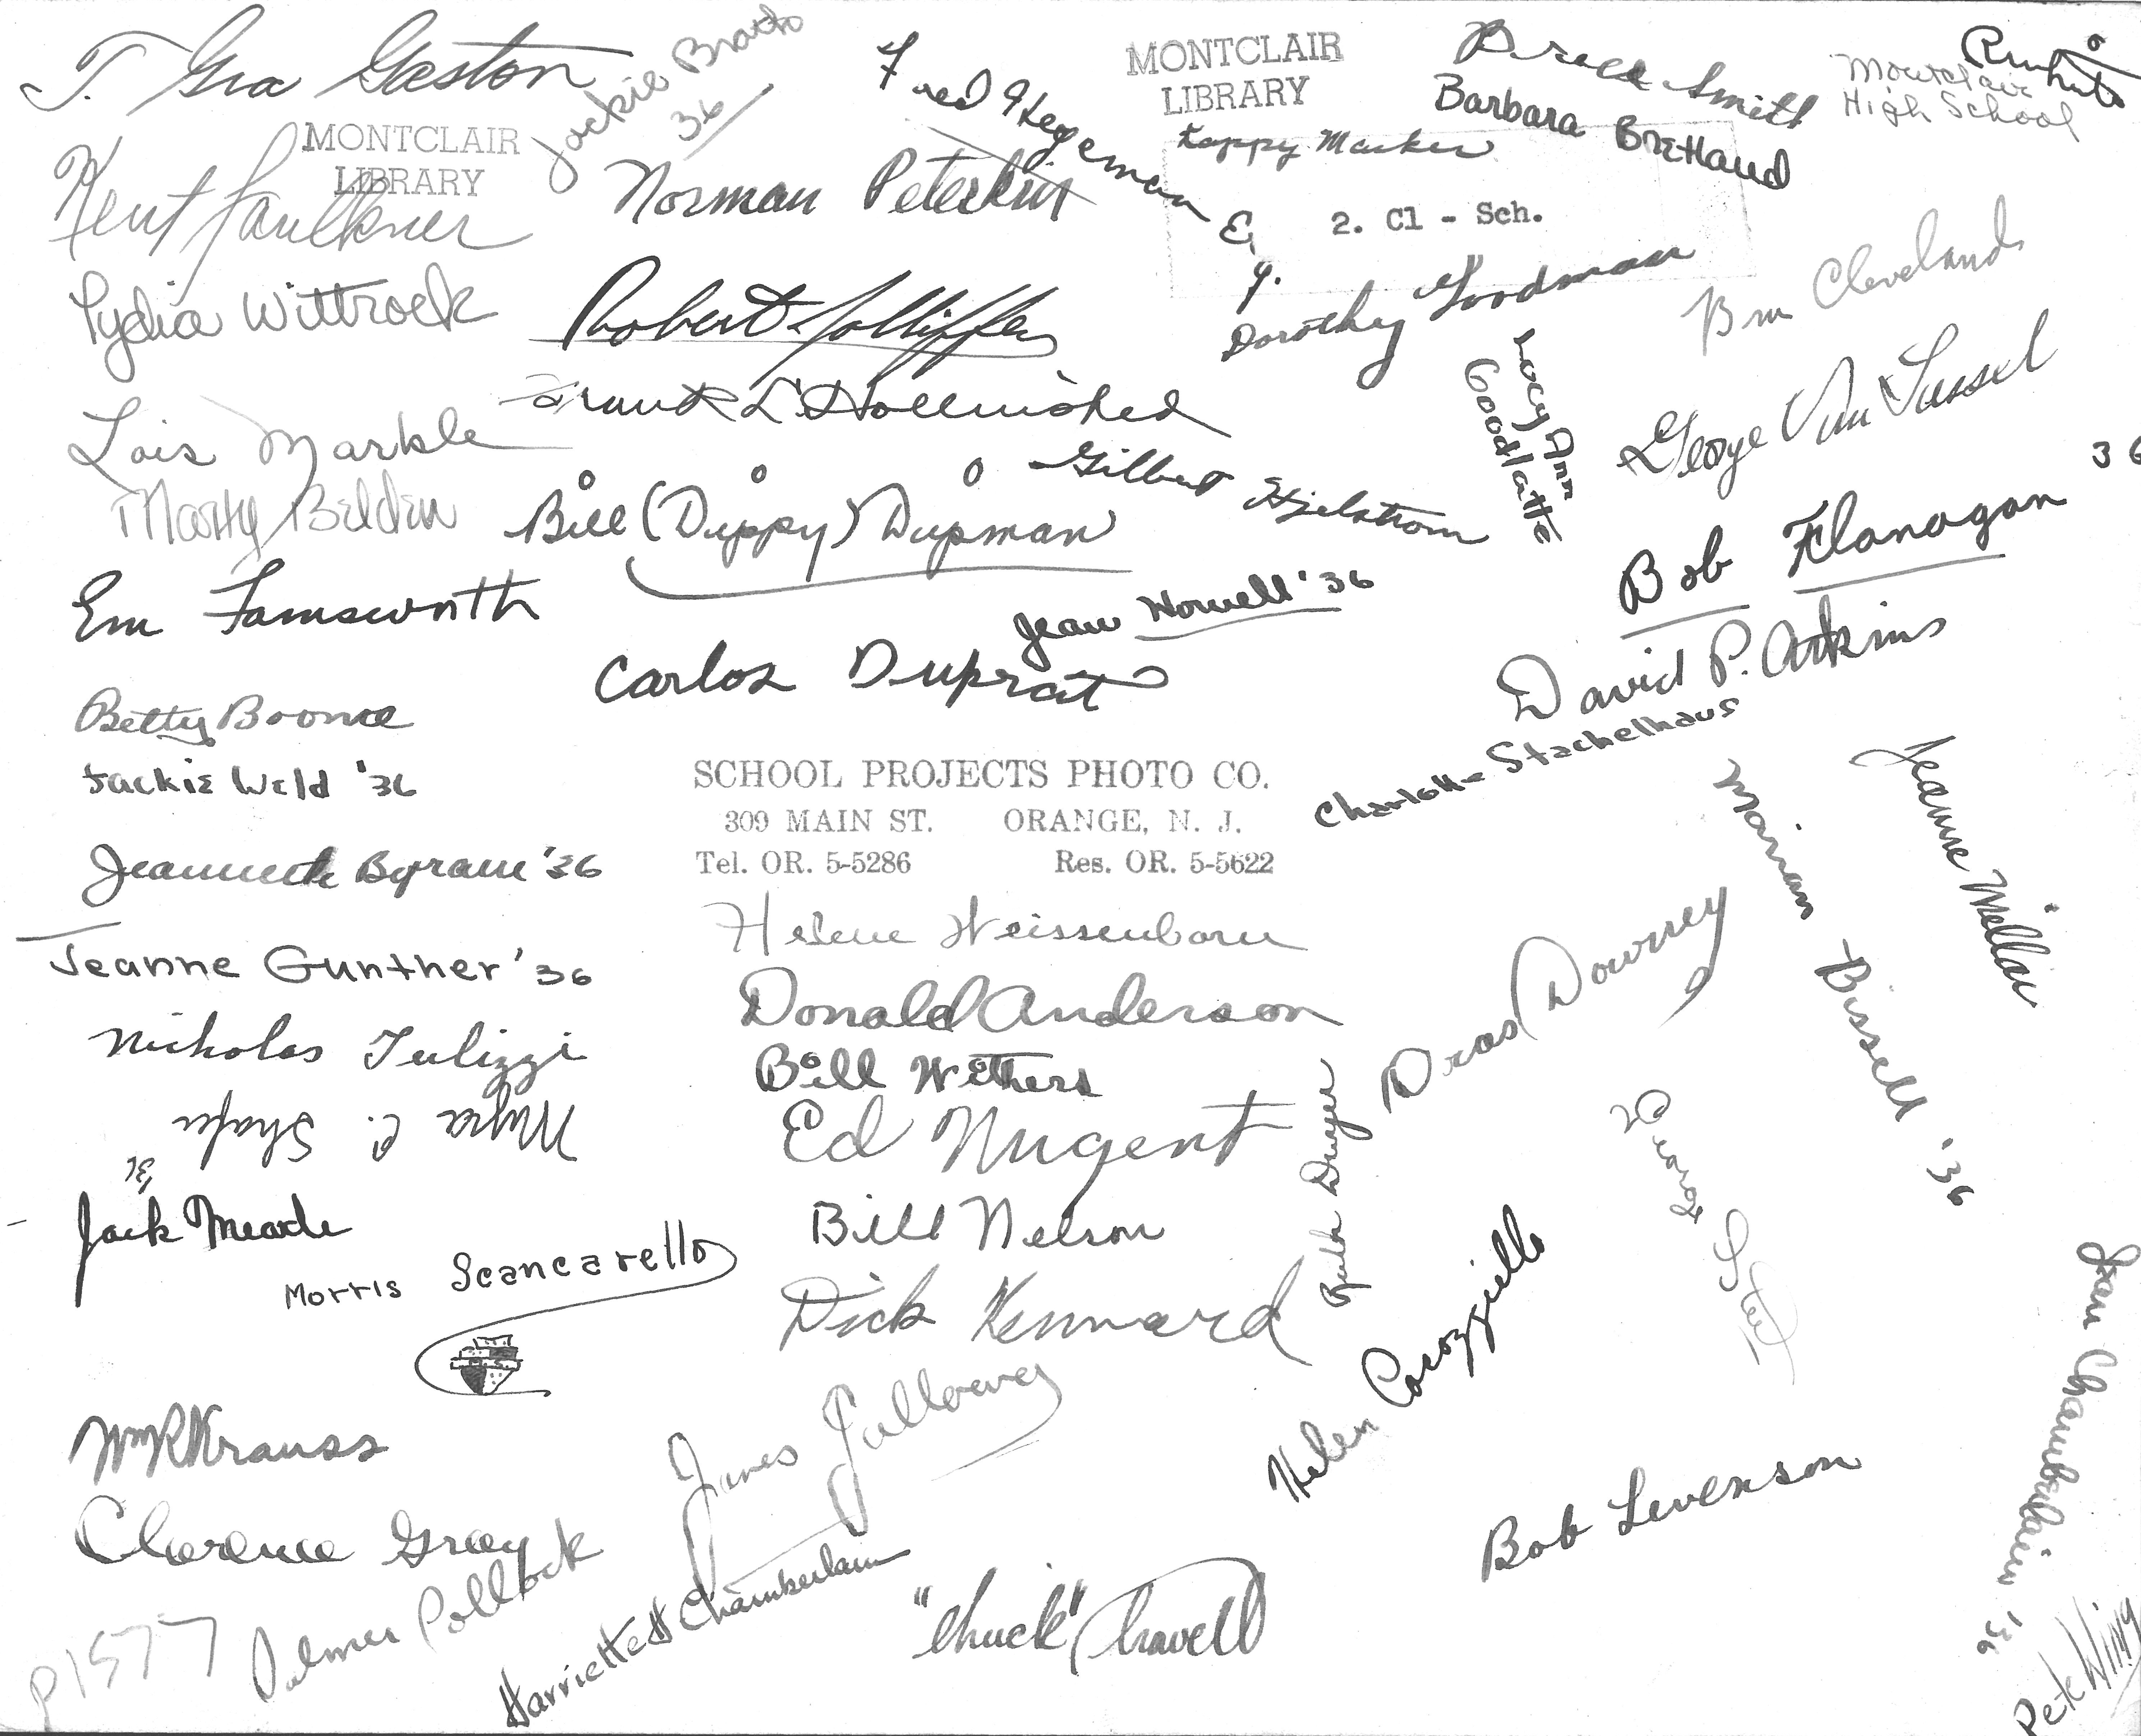 T. Gra Gaston
Jackie
36
Fred Hegeman
MONTCLAIR
LIBRARY
Bruce Smith
Barbara
Montclair
High School
MONTCLAIR
LIBRARY
Kent Faulkner
Norman Peterkin
2. Cl - Sch.
Lydia Wittrock
Robert Jolliffe
Dorothy Goodman
Cleveland
Lois Markle
Frank L.
Lucy Ann
Goodlatte
George Van Tassel
36
Marty Beldin
Bill (Duppy) Dupman
Gilbert Hjelstrom
Bob Flanagan
Em Farnsworth
Jean Howell '36
Carlos Duprat
David P. Atkins
Betty Boome
Charlotte Stachelhaus
Jackie Weld '36
SCHOOL PROJECTS PHOTO CO.
309 MAIN ST. ORANGE, N. J.
Tel. OR. 5-5286 Res. OR. 5-5622
Jeannette Byram '36
Marian Bissell '36
Jeanne
Helene Weissenborn
Jeanne Gunther '36
Donald Anderson
Downey
Nicholas Tulizzi
Bill Withers
Myra C. Shafer
'36
Ed Nugent
Ruth Dwyer
George
Jack Meade
Bill Nelson
Morris Scancarello
Dick Kennard
Helen
Jean Chamberlain '36
M.H.S.
Wm R Krauss
James Galloway
Bob Levenson
Clarence Gray
Pollock
Harriett Chamberlain
"Chuck"
P1577
Pete